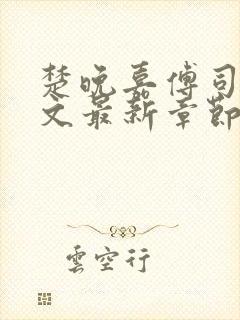 楚晚嘉傅司
文最新章節
雲空行